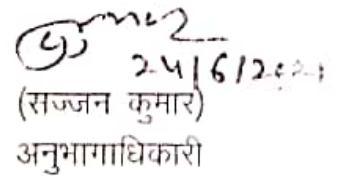 24/6/202
(सज्जन कुमार)
अनुभागाधिकारी